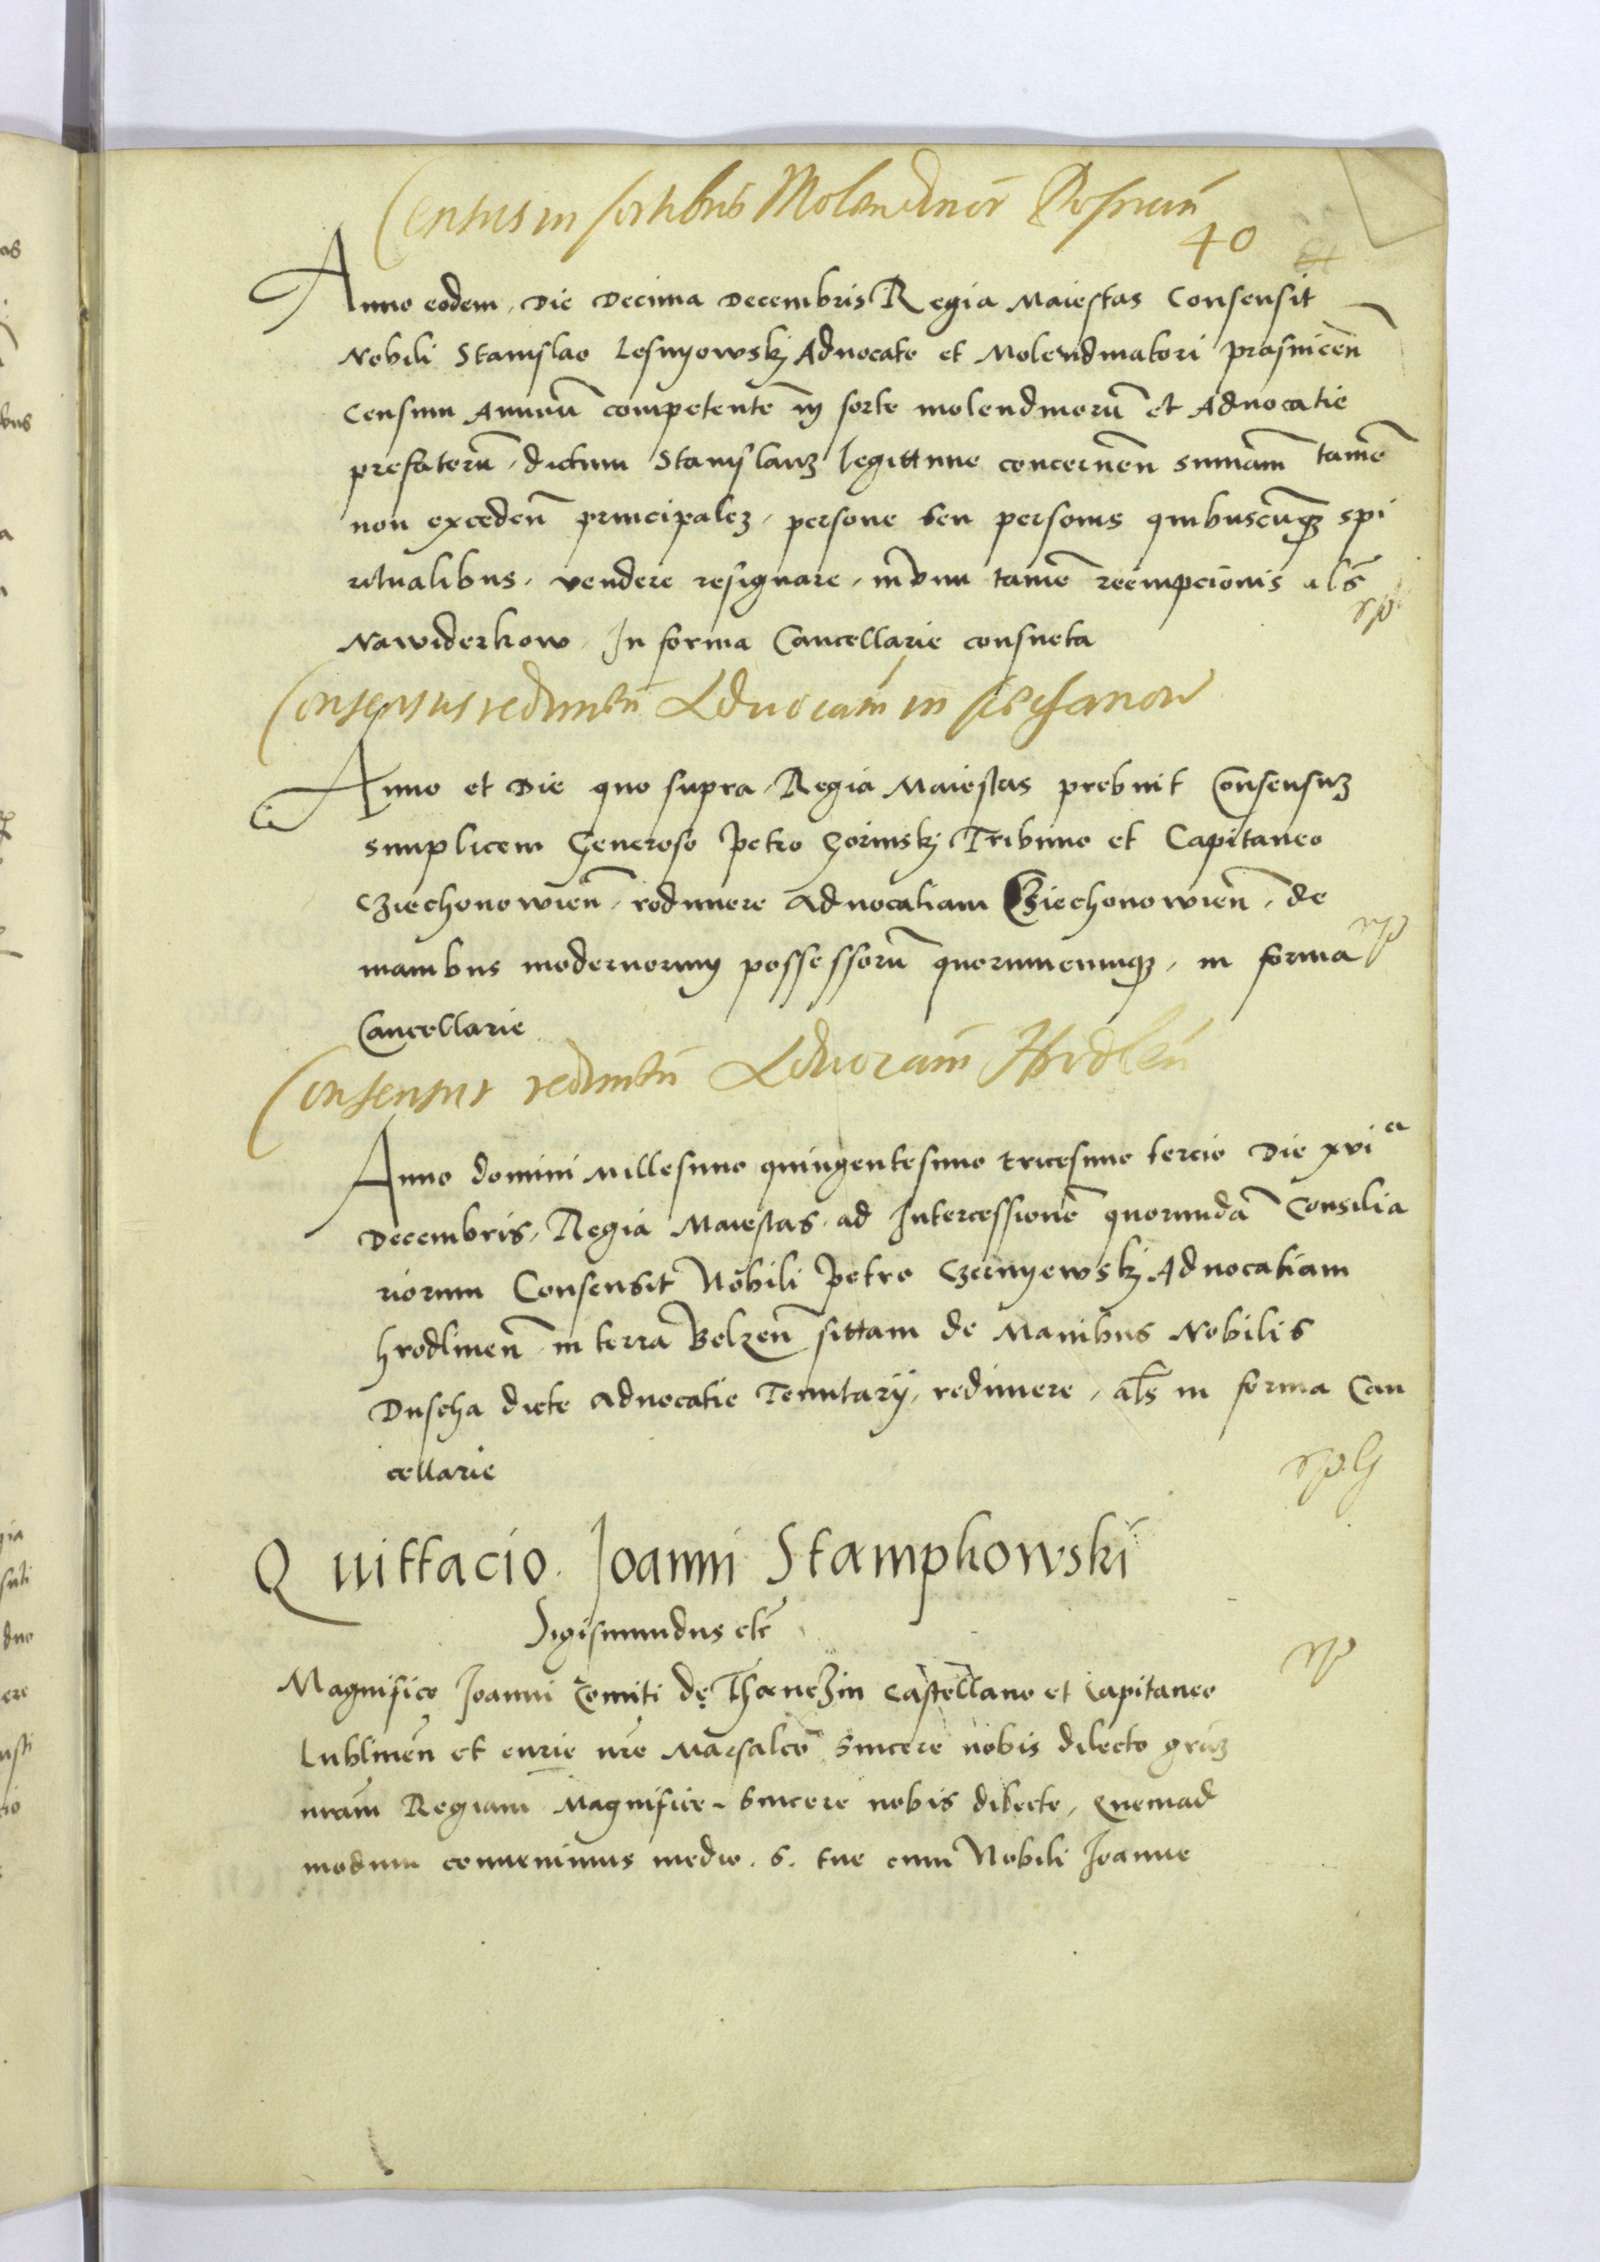 Census in sortibus Molendinor
40
Anno eodem, die decima decembris Regia Maiestas Consensit
Nobili Stanislao Lesnyowskÿ Aduocato et Molendinatori prasnicen̄
Censum Annuū competentē in sorte molendinorū et Aduocatie
prefatorū, dictum Stanislauȝ legittime concernen̄ sum̄am tamē
non exceden̄ principaleȝ, persone seu personis quibuscūqȝ spi
ritualibus, vendere resignare, in vim tamē reempcionis al̄s
Nawiderkow, In forma Cancellarie consueta
Consensus redimen̄ Aduocatiā in
Anno et Die quo supra Regia Maiestas prebuit Consensuȝ
simplicem Generoso Petro Gorinskÿ Tribuno et Capitaneo
Cziechonowien̄, redimere aduocatiam Cziechonowien̄, de
manibus modernorum possessorū quorumcumqȝ, in forma
Cancellarie
Consensus redimen̄ Aduocatiā Hrodlen̄
Anno domini Millesimo quingentesimo tricesimo tercio Die xvi a
Decembris, Regia Maiestas ad Intercessionē quorundā Consilia
riorum Consensit Nobili Petro Czernyewskÿ Aduocatiam
hrodlinen̄ in terra Belzen̄ sittam de Manibus Nobilis
Duscha dicte aduocatie Tenutarÿ, redimere, al̄s in forma Can
cellarie
Quittacio Joanni Stampkowski
Sigismundus etc̄
Magnifico Joanni Comiti de Tharnczin Castellano et Capitaneo
Lublinen̄ et curie nr̄e Marsalco Sincere nobis dilecto grāȝ
nrām Regiam Magnifice Sincere nobis dilecte, Quemad
modum conuenimus medio S. tue cum Nobili Joanne